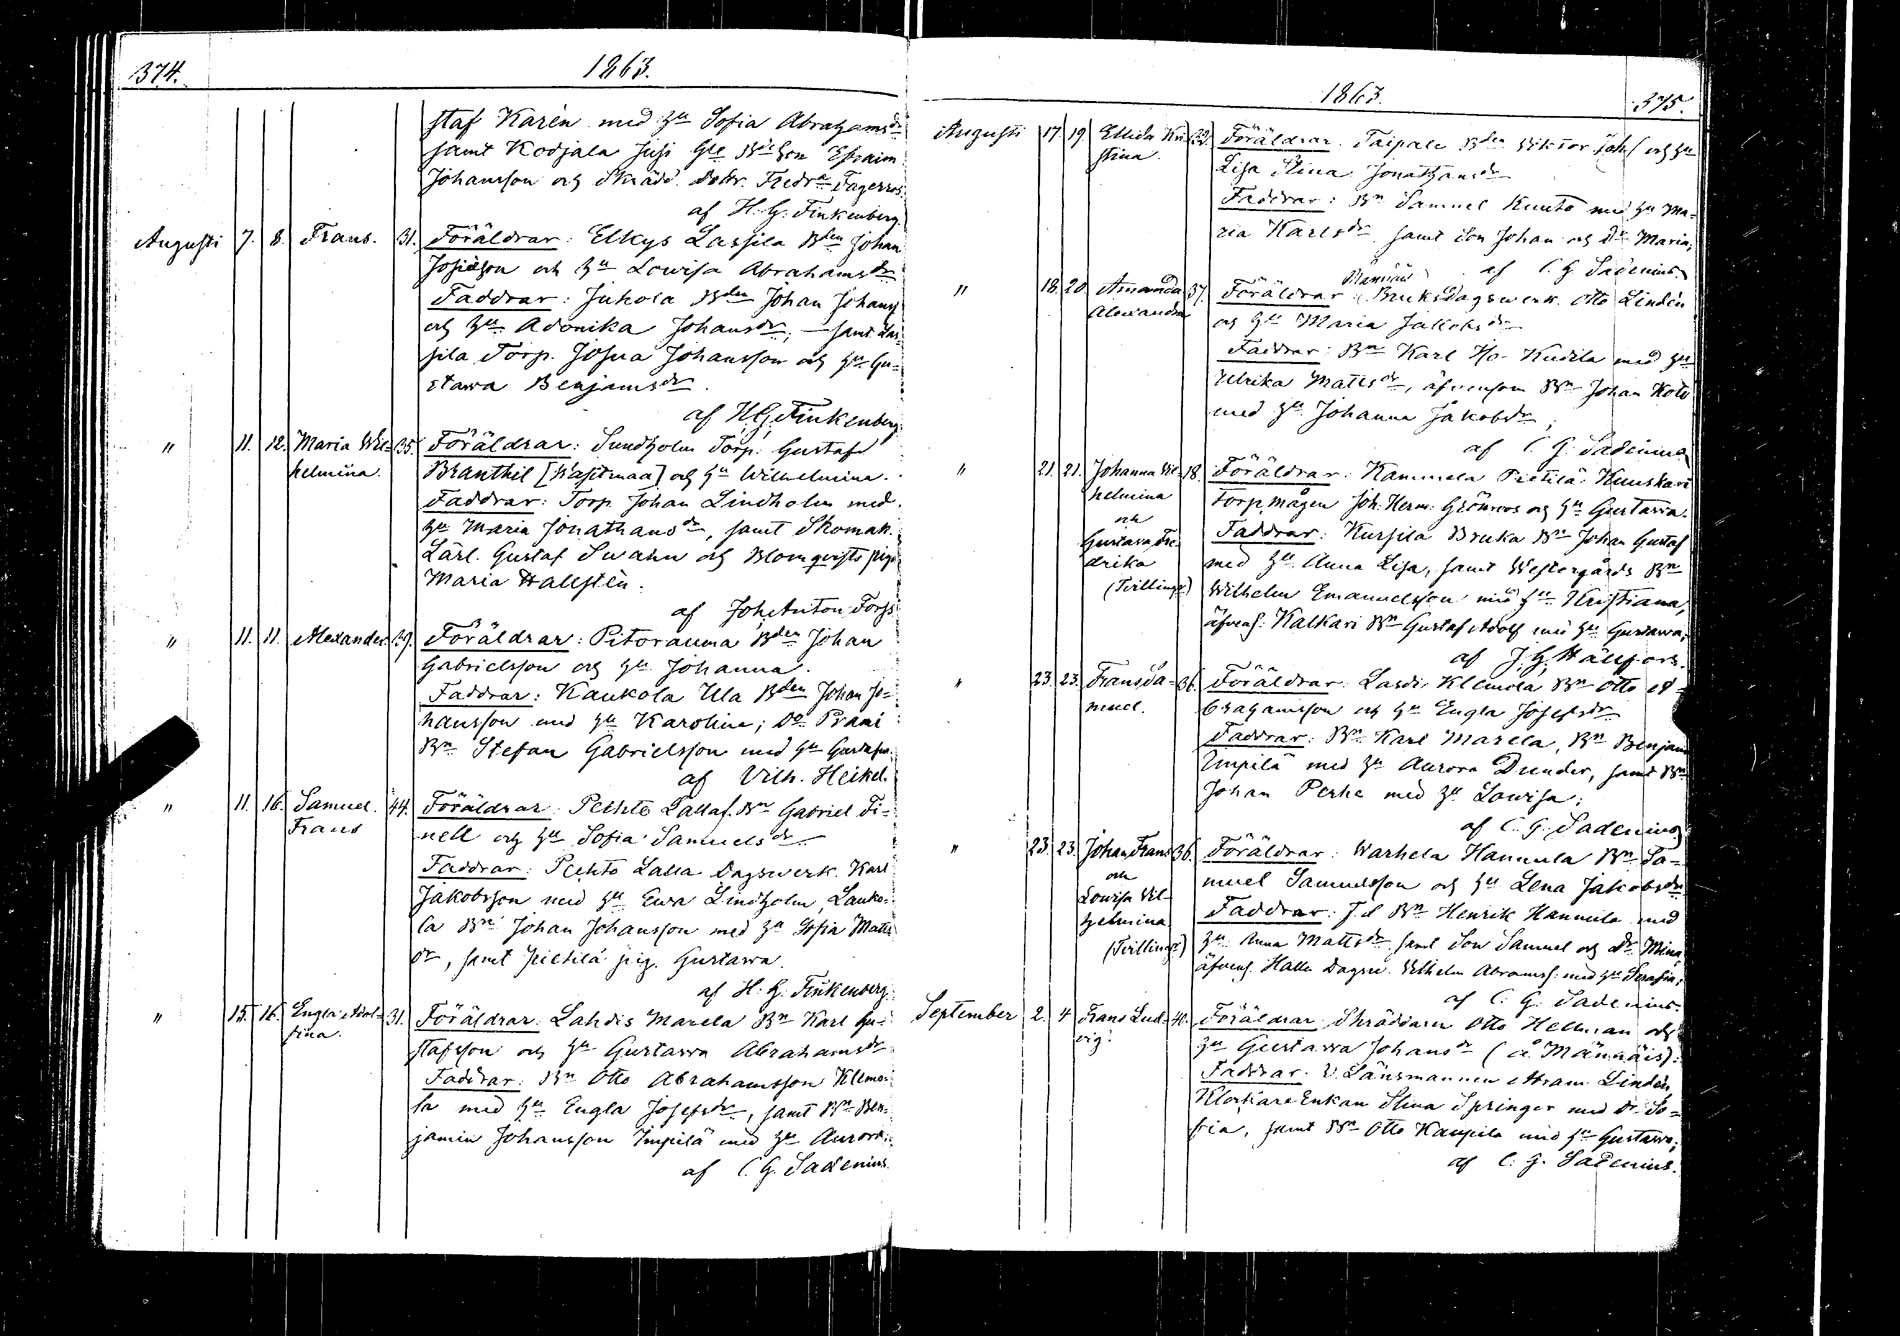 374.
1863.
staf Karén med hu Sofia Abrahamsdr
samt Kodjala Juji Gle Bde Son Efraim
Johansson och Skrädd. dottr. Fredra Fagerros
af H. G. Finkenberg.
Augusti 7. 8. Frans. 31. Föräldrar: Elkys Lassila Bden Johan
Josiæson och hu Lowisa Abrahamsdr
Faddrar: Jukola Bden Johan Johanss
och hu Adonika Johansdr; samt Las-
sila Torp. Josua Johansson och hu Gu-
stawa Benjamsdr.
af H. G. Finkenberg.
" 11. 12. Maria Wil- 35. Föräldrar: Sundholm Torp. Gustaf
helmina. Branthil [Wasitmaa] och hu Wilhelmina.
Faddrar: Torp. Johan Lindholm med
hu Maria Jonathansdr, samt Skomak.
Lärl. Gustaf Swahn och Blomqvists pig.
Maria Hallstén.
af Joh. Anton Forss
" 11. 11. Alexander 39. Föräldrar: Pitorauma Bden Johan
Gabrielsson och hu Johanna.
Faddrar: Kaukola Ula Bden Johan Jo-
hansson med hu Karolina; Do Prami
Bn Stefan Gabrielsson med hu Gustafva
af Vilh. Heikel.
" 11. 16. Samuel 44. Föräldrar: Pethto Lallaf. Bn Gabriel Fi-
Frans nell och hu Sofia Samuelsdr
Faddrar: Pethto Lalla Dagswerk. Karl
Jakobsson med hu Ewa Lindholm, Lauko-
la Bn Johan Johansson med hu Sofia Matts
dr, samt Pietilä pig. Gustawa.
af H. G. Finkenberg.
" 15. 16. Engla Adol- 31. Föräldrar: Lahdis Marela Bn Karl Gu-
fina. stafsson och hu Gustawa Abrahamsdr
Faddrar: Bn Otto Abrahamsson Klemo-
la med hu Engla Josefsdr, samt Bn Ben-
jamin Johansson Impilä med hu Aurora;
af C. G. Sadenius.
1863.
375.
Augusti 17. 19. Ellida Kri- 22. Föräldrar: Taipale Bden Wiktor Johs och hu
stina. Lisa Stina Jonathansdr
Faddrar: Bn Samuel Kuuto med hu Ma-
ria Karlsdr samt Son Johan och Dr Maria;
af C. G. Sadenius.
" 18. 20. Amanda 37. Föräldrar: Männäis Bruksdagswerk. Otto Lindén
Alexandra och hu Maria Jakobsdr
Faddrar: Bn Karl Iso-Kudila med hu
Ulrika Mattsdr, äfvensom Bn Johan Koto
med hu Johanna Jakobsdr;
af C. G. Sadenius.
" 21. 21. Johanna Wil- 18. Föräldrar: Kammela Pietilä Kuuskari
helmina Torp. mågen Joh. Herm. Grönroos och hu Gustawa.
och Faddrar: Kursila Bruka Bn Johan Gustaf
Gustava Fre- med hu Anna Lisa, samt Westergårds Bn
drika Wilhelm Emanuelsson med hu Kristiana,
(Tvillingar) äfvens. Kalkari Bn Gustaf Adolf med hu Gustawa;
af J. G. Hällfors.
" 23. 23. Frans Sa- 36. Föräldrar: Lasdi, Klemola Bn Otto A-
muel. brahamsson och hu Engla Josefsdr
Faddrar: Bn Karl Marela, Bn Benjam
Impilä med hu Aurora Dunder, samt Bn
Johan Perke med hu Lowisa;
af C. G. Sadenius
" 23. 23. Johan Frans 36. Föräldrar: Warhela Hannula Bn Sa-
och muel Samuelsson och hu Lena Jakobsdr
Lowisa Vil- Faddrar: Jd Bn Henrik Hannula med
helmina hu Anna Mattsdr samt Son Samuel och Dr Mina,
(Tvillingar) äfvens. Halla Dagsv. Wilhelm Abramss. med hu Serafia;
af C. G. Sadenius.
September 2. 4. Frans Lud- 40. Föräldrar: Skräddaren Otto Hellman och
vig. hu Gustawa Johansdr (å Männäis).
Faddrar: V. Länsmannen Abram Lindén,
Klockare Enkan Stina Springer med Dr So-
fia, samt Bn Otto Kaupila med hu Gustawa;
af C. G. Sadenius.